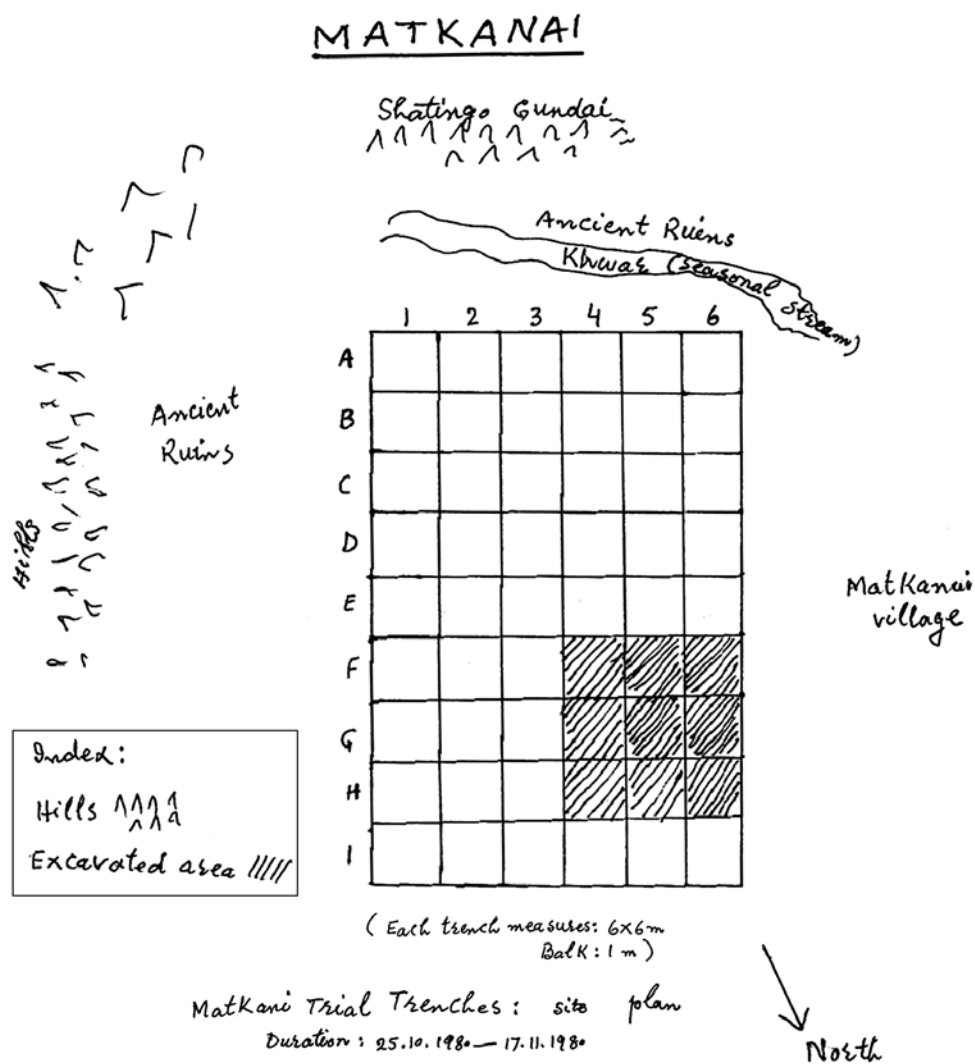 MATKANAI
Shatingo Gundai
Ancient Ruins
Khwar (seasonal stream)
1 2 3 4 5 6
A
B
C
D
E
F
G
H
I
Ancient
Ruins
Hills
MatKanai
village
Index:
Hills
Excavated area
( Each trench measures: 6x6m
Balk: 1 m )
MatKani Trial Trenches: site plan
Duration: 25.10.1980 — 17.11.1980
North